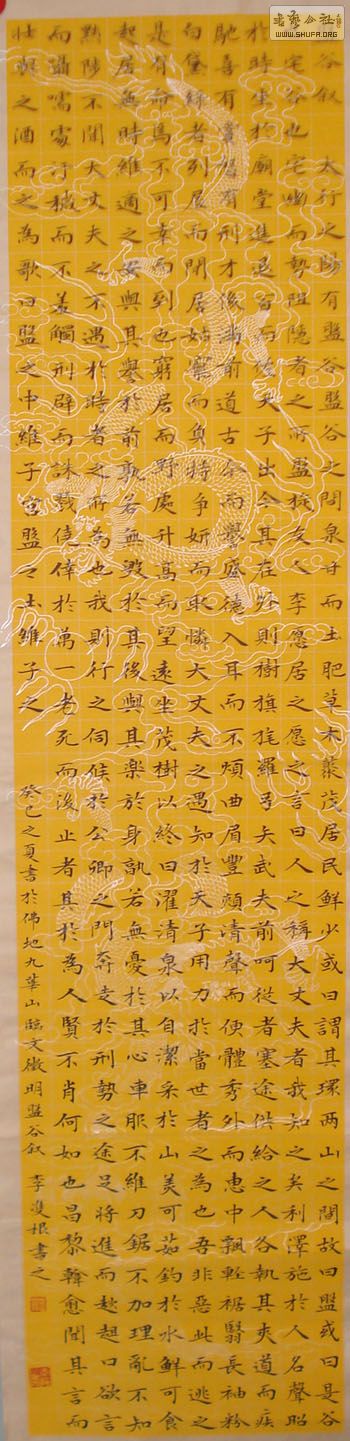 書藝公社
WWW.SHUFA.ORG
谷叙 太行之陽有盤谷盤谷之間泉甘而土肥草木藂茂居民鮮少或曰謂其環兩山之間故曰盤或曰是谷
宅谷也宅幽而勢阻隱者之所盤旋友人李愿居之愿之言曰人之稱大丈夫者我知之矣利澤施於人名聲昭
於時坐於廟堂進退百官而佐天子出令其在外則樹旗旄羅弓矢武夫前呵從者塞途供給之人各執其夾道而疾
馳喜有賞怒有刑才俊滿前道古今而譽盛德入耳而不煩曲眉豐頰清聲而便體秀外而惠中飄輕裾翳長袖粉
白黛綠者列屋而閒居妬寵而負恃爭妍而取憐大丈夫之遇知於天子用力於當世者之為也吾非惡此而逃之
是有命焉不可幸而到也窮居而野處升高而望遠坐茂樹以終日濯清泉以自潔采於山美可茹釣於水鮮可食
起居無時維適之安與其譽於前孰若無毀於其後與其樂於身孰若無憂於其心車服不維刀鋸不加理亂不知
黜陟不聞大丈夫之不遇於時者之所為也我則行之伺候於公卿之門奔走於刑勢之途足將進而趑趄口欲言
而囁嚅處汙穢而不羞觸刑辟而誅戮僥倖於萬一老死而後止者其於為人賢不肖何如也昌黎韓愈聞其言而
壯與之酒而之為歌曰盤之中維子宮盤々土維子之
癸巳之夏書於佛地九華山臨文徵明盤谷叙 李雙根書之